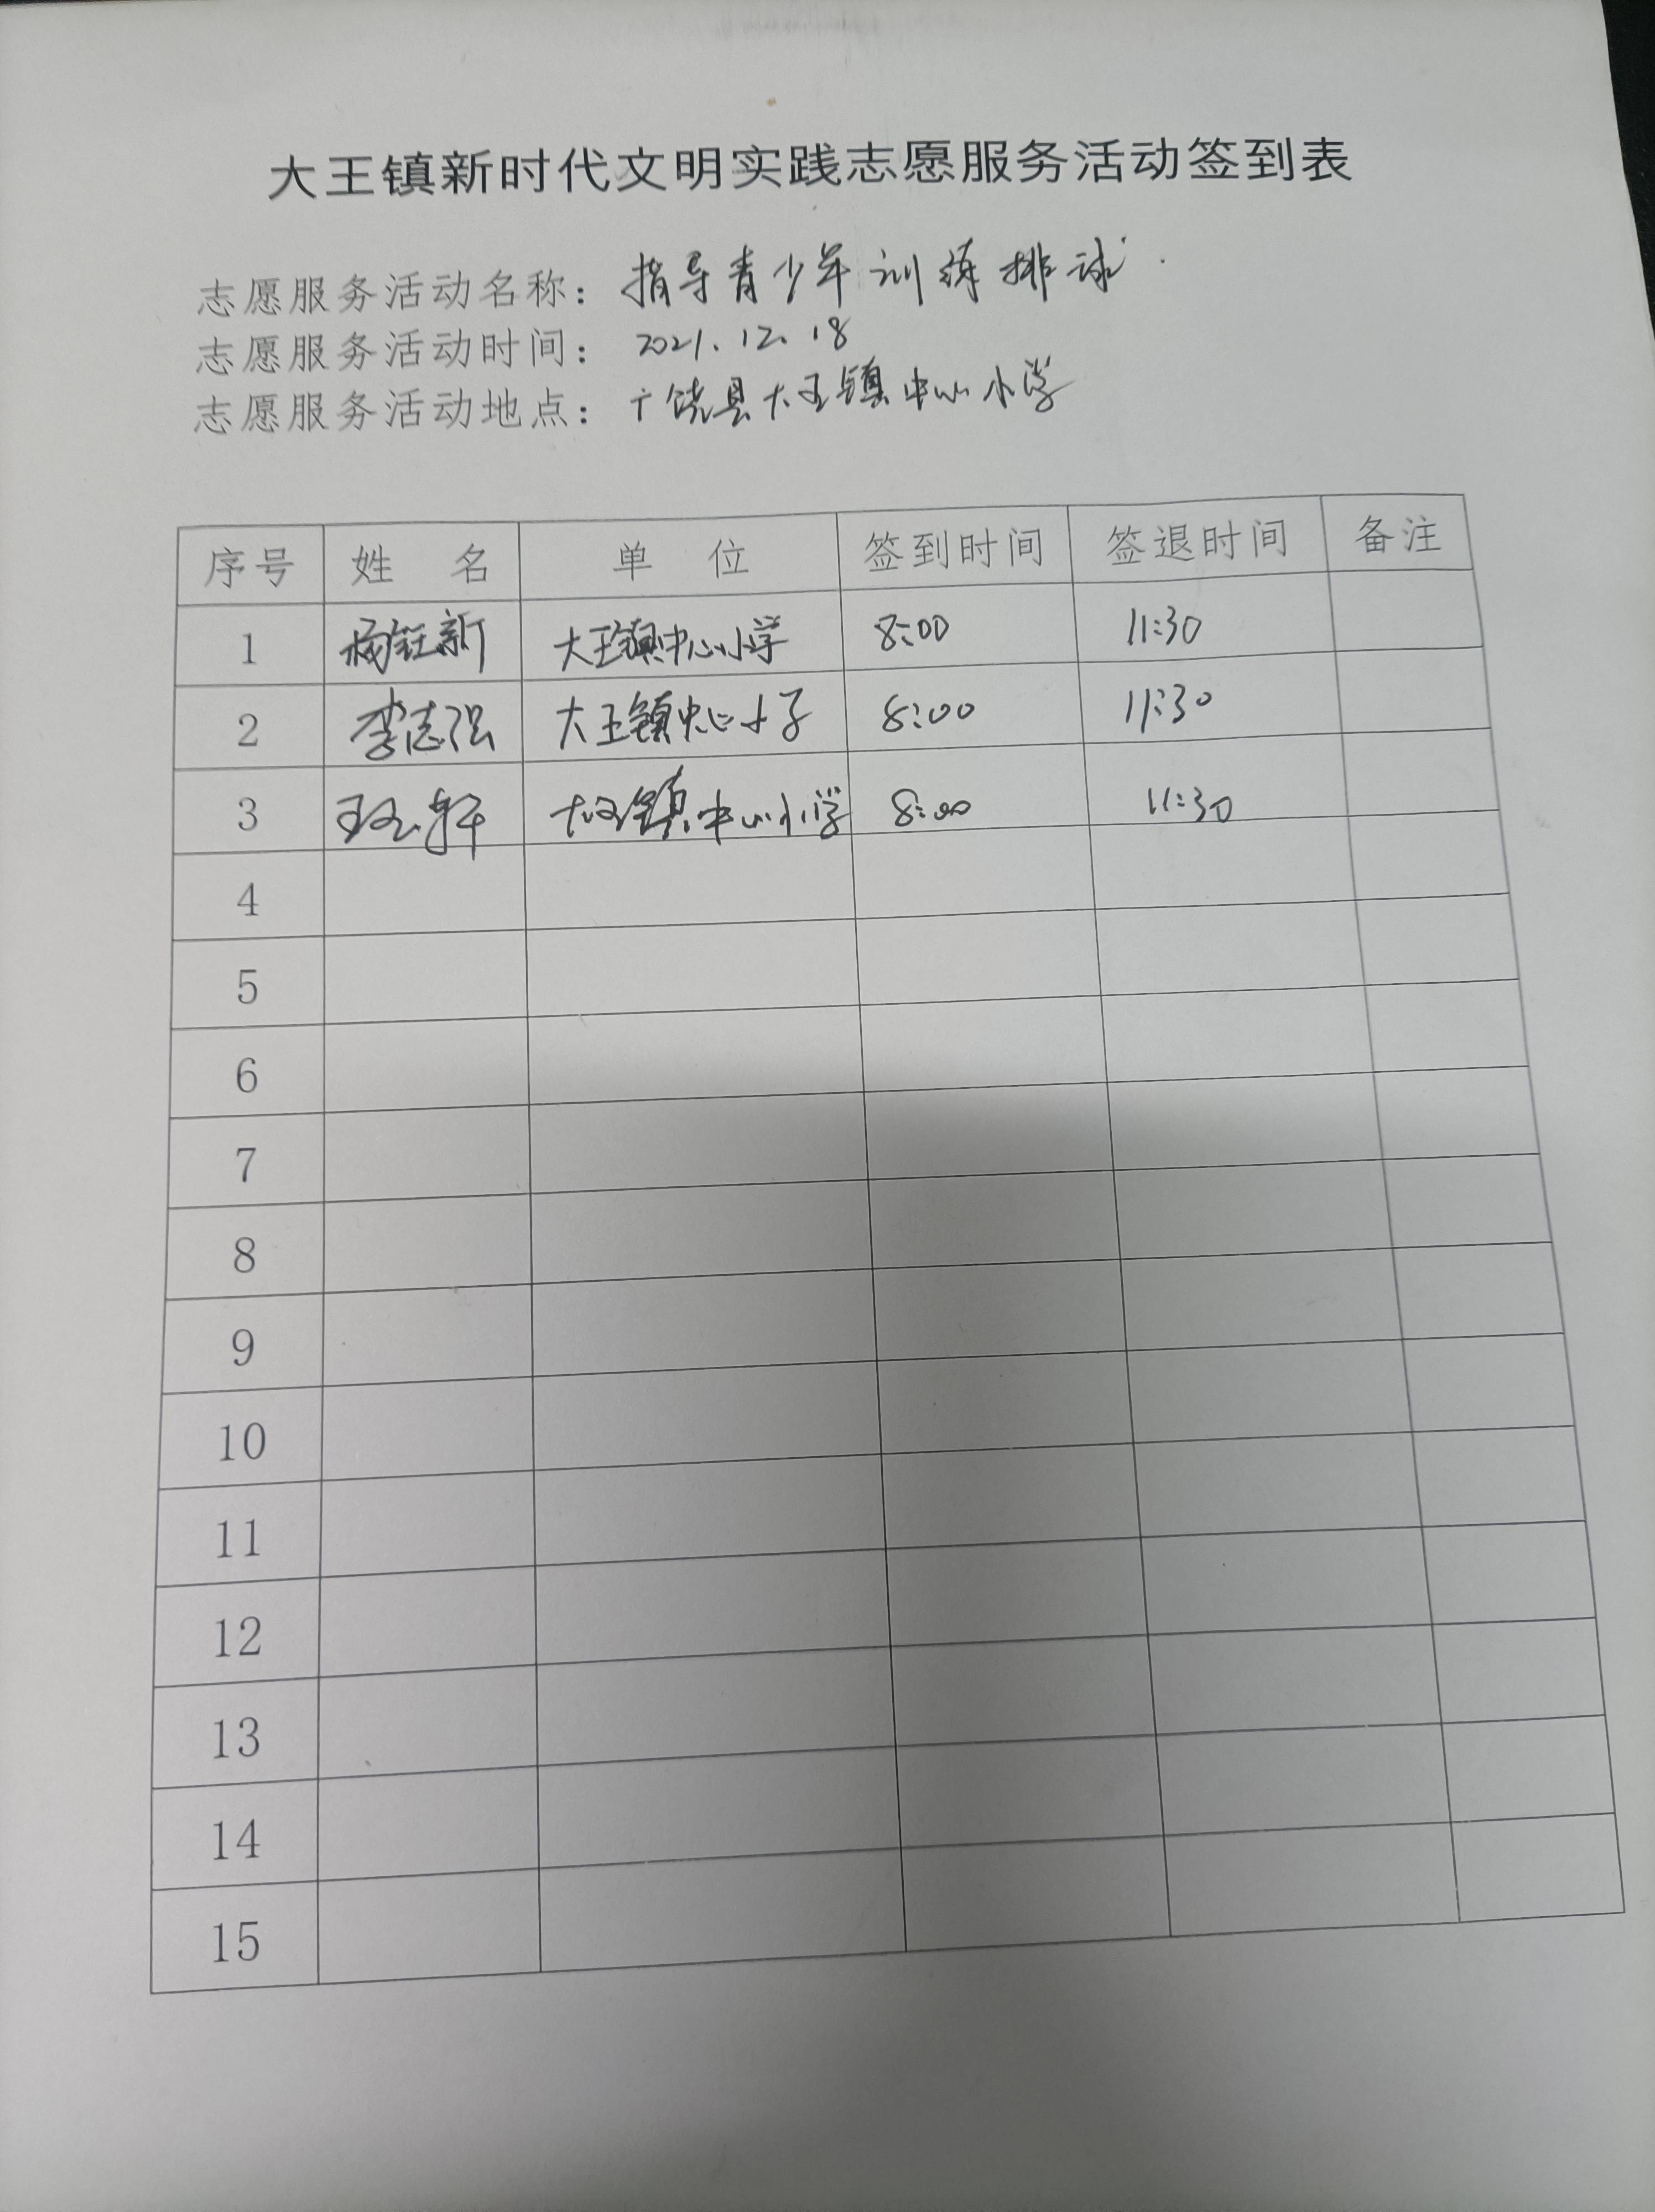 大王镇新时代文明实践志愿服务活动签到表
志愿服务活动名称：指导青少年训练排球.
志愿服务活动时间：2021.12.18
志愿服务活动地点：广饶县大王镇中心小学
序号 姓 名 单 位 签到时间 签退时间 备注
1 杨钰新 大王镇中心小学 8:00 11:30
2 李志强 大王镇中心小学 8:00 11:30
3 大王镇中心小学 8:00 11:30
4
5
6
7
8
9
10
11
12
13
14
15